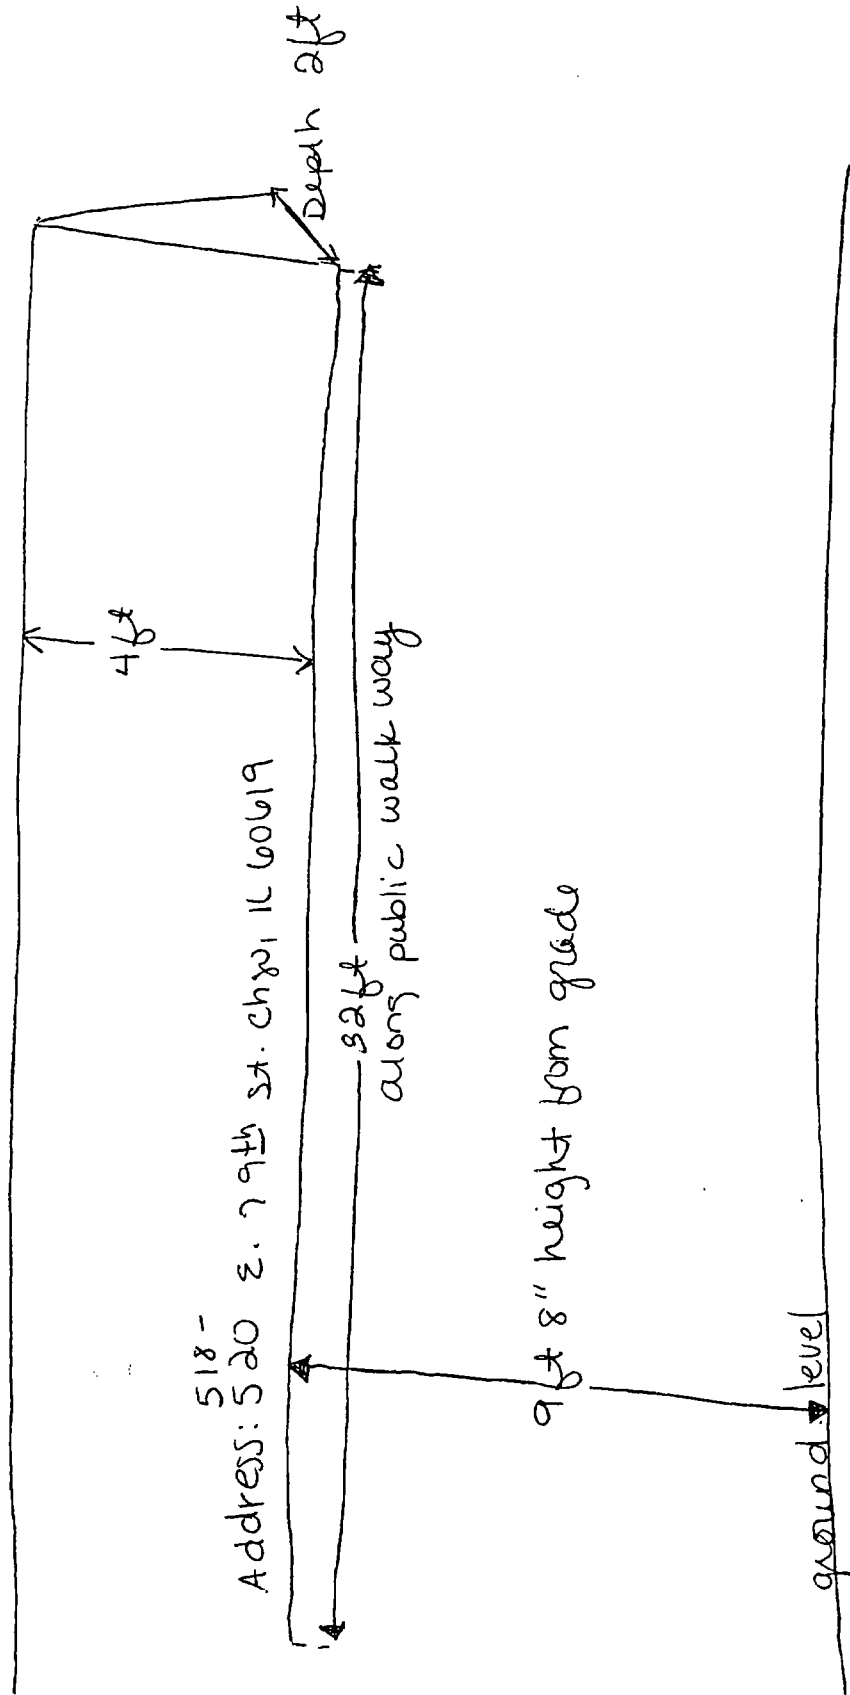 4ft
Depth 2ft
518-
Address: 520 E. 79th St. Chgo, IL 60619
32ft
along public walk way
9 ft 8" height from grade
ground level